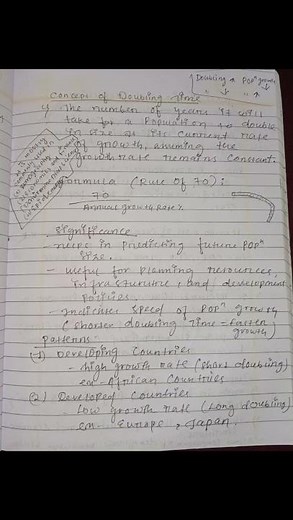 Doubling ↑ POPⁿ growth ↓
" ↓ " ↑
Concept of Doubling Time
The number of years it will
take for a Population to double
in size at its current rate
of growth, assuming the
growth rate remains constant.
Formula (Rule of 70):
70
Annual growth Rate %
Significance
- Helps in predicting future POPⁿ
size.
- Useful for planning resources,
infrastructure, and development
policies.
- Indicates speed of POPⁿ growth
(shorter doubling time = faster
growth)
Patterns
(1) Developing Countries
- high growth rate (short doubling)
ex. African Countries
(2) Developed Countries
Low growth rate (Long doubling)
ex. Europe, Japan.